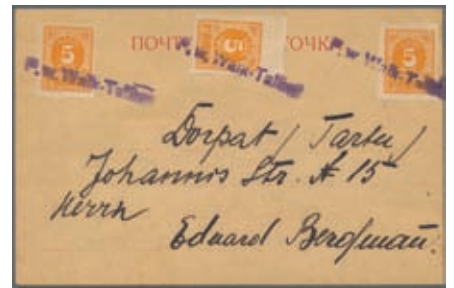 5 5 5
ПОЧТ ТОЧК
P.w. Walk-Tallinn P.w. Walk-Tallinn P.w. Walk-Tal
Dorpat / Tartu /
Johannis Str. № 15
Herrn
Eduard Bergmann.